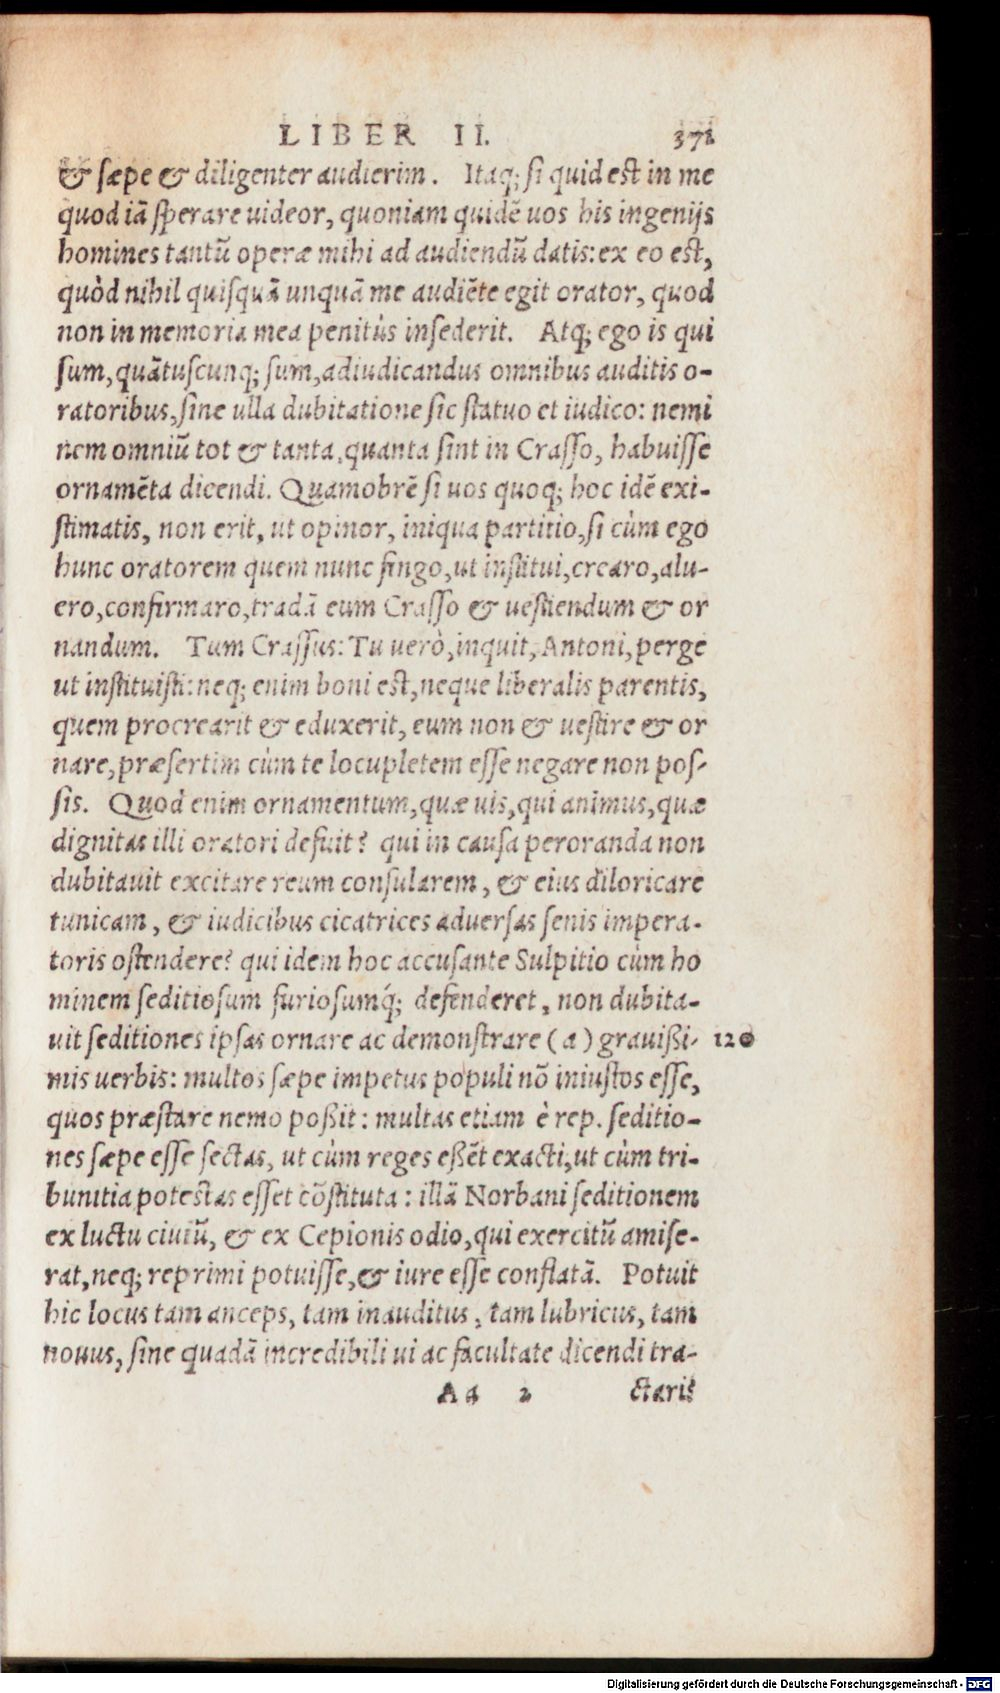 LIBER II. 371
& sæpe & diligenter audierim. Itaq; si quid est in me
quod iā sperare uideor, quoniam quidē uos his ingenijs
homines tantū operæ mihi ad audiendū datis: ex eo est,
quòd nihil quisquā unquā me audiēte egit orator, quod
non in memoria mea penitùs insederit. Atq; ego is qui
sum, quātuscunq; sum, adiudicandus omnibus auditis o-
ratoribus, sine ulla dubitatione sic statuo et iudico: nemi
nem omniū tot & tanta, quanta sint in Crasso, habuisse
ornamēta dicendi. Quamobrē si uos quoq; hoc idē exi-
stimatis, non erit, ut opinor, iniqua partitio, si cùm ego
hunc oratorem quem nunc fingo, ut institui, crearo, alu-
ero, confirmaro, tradā eum Crasso & uestiendum & or
nandum. Tum Crassus: Tu uerò, inquit, Antoni, perge
ut instituisti: neq; enim boni est, neque liberalis parentis,
quem procrearit & eduxerit, eum non & uestire & or
nare, præsertim cùm te locupletem esse negare non pos-
sis. Quod enim ornamentum, quæ uis, qui animus, quæ
dignitas illi oratori defuit? qui in causa peroranda non
dubitauit excitare reum consularem, & eius diloricare
tunicam, & iudicibus cicatrices aduersas senis impera-
toris ostendere? qui idem hoc accusante Sulpitio cùm ho
minem seditiosum furiosumq́; defenderet, non dubita-
uit seditiones ipsas ornare ac demonstrare (a) grauißi- 120
mis uerbis: multos sæpe impetus populi nō iniustos esse,
quos præstare nemo poßit: multas etiam è rep. seditio-
nes sæpe esse sectas, ut cùm reges eßēt exacti, ut cùm tri-
bunitia potestas esset cōstituta: illā Norbani seditionem
ex luctu ciuiū, & ex Cepionis odio, qui exercitū amise-
rat, neq; reprimi potuisse, & iure esse conflatā. Potuit
hic locus tam anceps, tam inauditus, tam lubricus, tam
nouus, sine quadā incredibili ui ac facultate dicendi tra-
Aa 2 ctari?
Digitalisierung gefördert durch die Deutsche Forschungsgemeinschaft - DFG